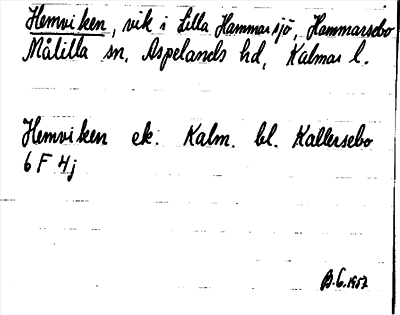 Hemviken, vik i Lilla Hammarsjö, Hammarsebo
Målilla sn, Aspelands hd, Kalmar l.
Hemviken ek. Kalm. bl. Kallersebo
6 F 4j
B.G. 1957